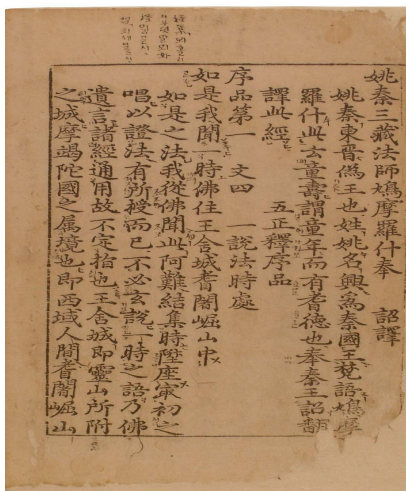 姚秦三藏法師鳩摩羅什奉 詔譯
姚秦東晉僞王也姓姚名興爲秦國王梵語鳩摩
羅什此云童壽謂童年而有耆德也奉秦王詔翻
譯此經 五正釋序品
序品第一 文四 一說法時處
如是我聞一時佛住王舍城耆闍崛山中
如是之法我從佛聞此阿難結集時陞座㝡初之
唱以證法有所授而已不必玄說一時之語乃佛
遺言諸經通用故不定指也王舍城即靈山所附
之城摩竭陀國之属境也即西域人間耆闍崛山